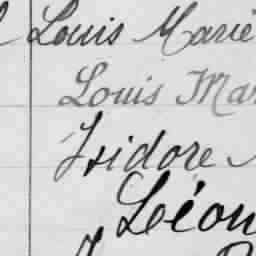 Louis Marie
Louis Mar
Isidore
Léon